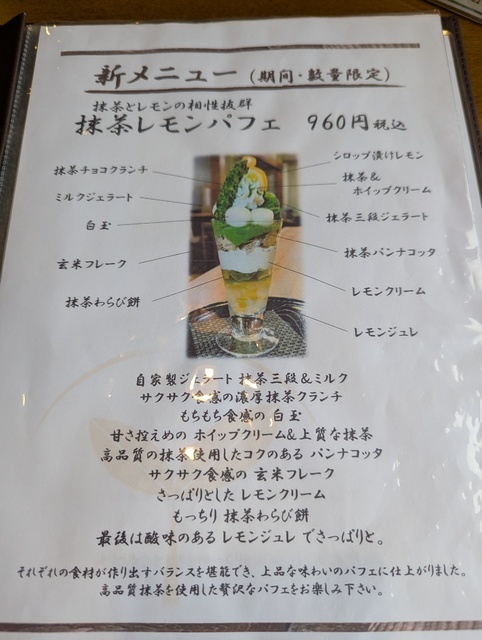 新メニュー（期間・数量限定）
抹茶とレモンの相性抜群
抹茶レモンパフェ 960円税込
シロップ漬けレモン
抹茶チョコクランチ
抹茶&
ホイップクリーム
ミルクジェラート
抹茶三段ジェラート
白玉
抹茶パンナコッタ
玄米フレーク
レモンクリーム
抹茶わらび餅
レモンジュレ
自家製ジェラート 抹茶三段&ミルク
サクサク食感の濃厚抹茶クランチ
もちもち食感の 白玉
甘さ控えめの ホイップクリーム&上質な抹茶
高品質の抹茶使用したコクのある パンナコッタ
サクサク食感の 玄米フレーク
さっぱりとした レモンクリーム
もっちり 抹茶わらび餅
最後は酸味のある レモンジュレ でさっぱりと。
それぞれの食材が作り出すバランスを堪能でき、上品な味わいのパフェに仕上がりました。
高品質抹茶を使用した贅沢なパフェをお楽しみ下さい。